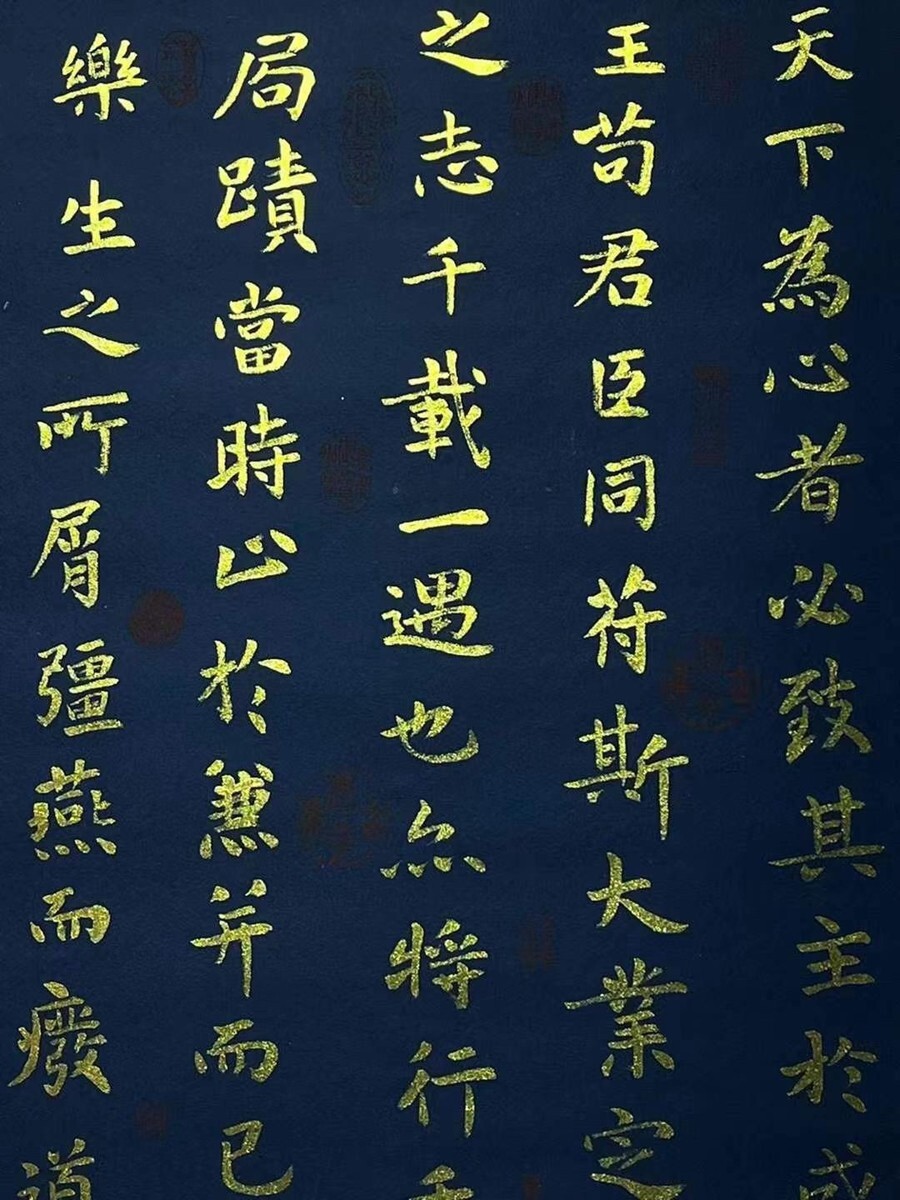 天下為心者必致其主於盛
王苟君臣同符斯大業定
之志千載一遇也亦將行千
局蹟當時止於兼并而已
樂生之所屑彊燕而廢道